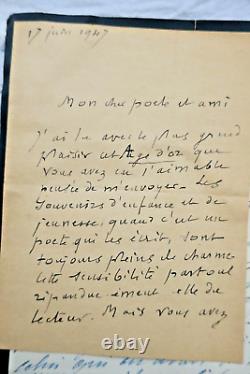 17 juin 1947
Mon cher poète et ami
J'ai lu avec le plus grand
plaisir cet Age d'or que
vous avez eu l'aimable
pensée de m'envoyer. Les
souvenirs d'enfance et de
jeunesse, quand c'est un
poète qui les écrit, sont
toujours pleins de charme
cette sensibilité partout
répandue émeut elle du
lecteur. Mais vous avez
ebay.com